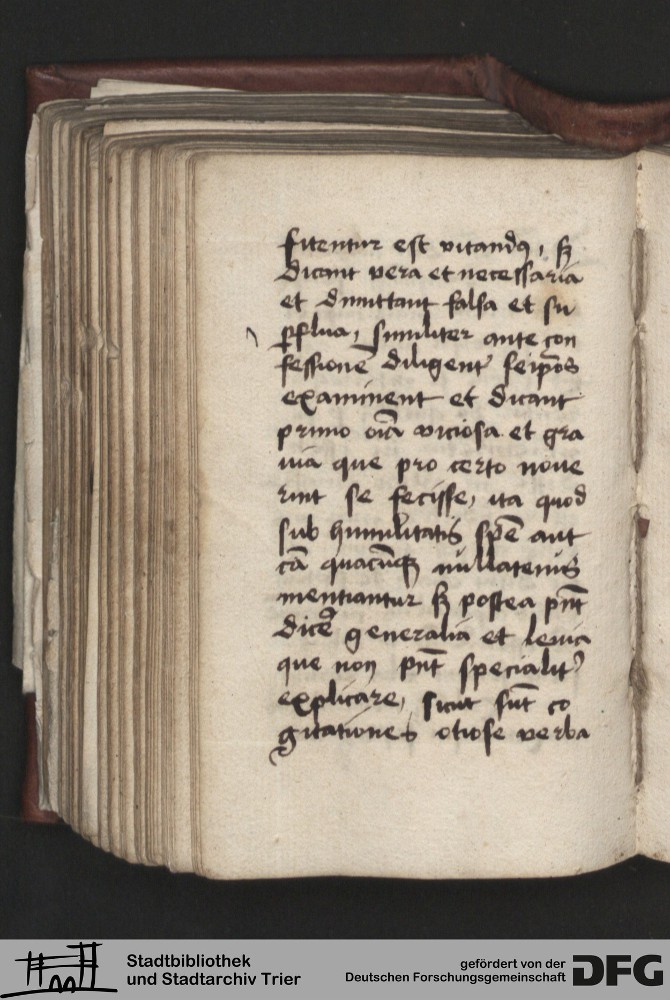 fitentur est vitandꝰ, sꝫ
dicant vera et necessaria
et dimittant falsa et su
ꝑflua, Similiter ante con
fessionē diligent᷑ seip̄os
examinent et dicant
primo oīa viciosa et gra
uia que pro certo noue
rint se fecisse, ita quod
sub humilitatis spē aut
cā quacūqꝫ nullatenus
mentiantur sꝫ postea pn̄t
dicē generalia et leuia
que non pn̄t specialit᷑
explicare, sicut sūt co
gitationes otiose verba
Stadtbibliothek
und Stadtarchiv Trier
gefördert von der
Deutschen Forschungsgemeinschaft
DFG